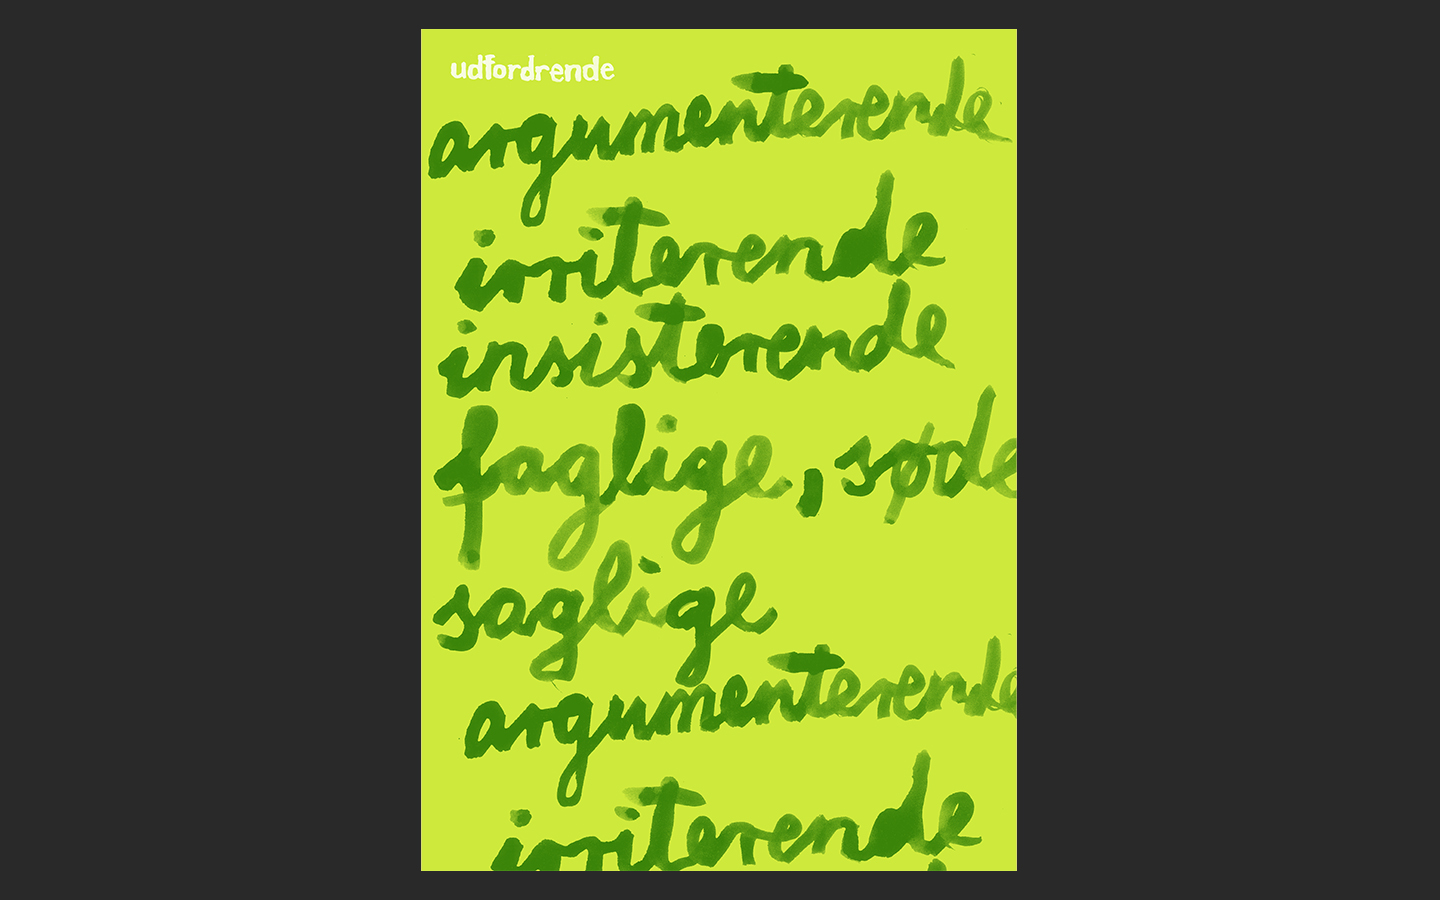 udfordrende
argumenterende
irriterende
insisterende
faglige, søde
saglige
argumenterende
irriterende